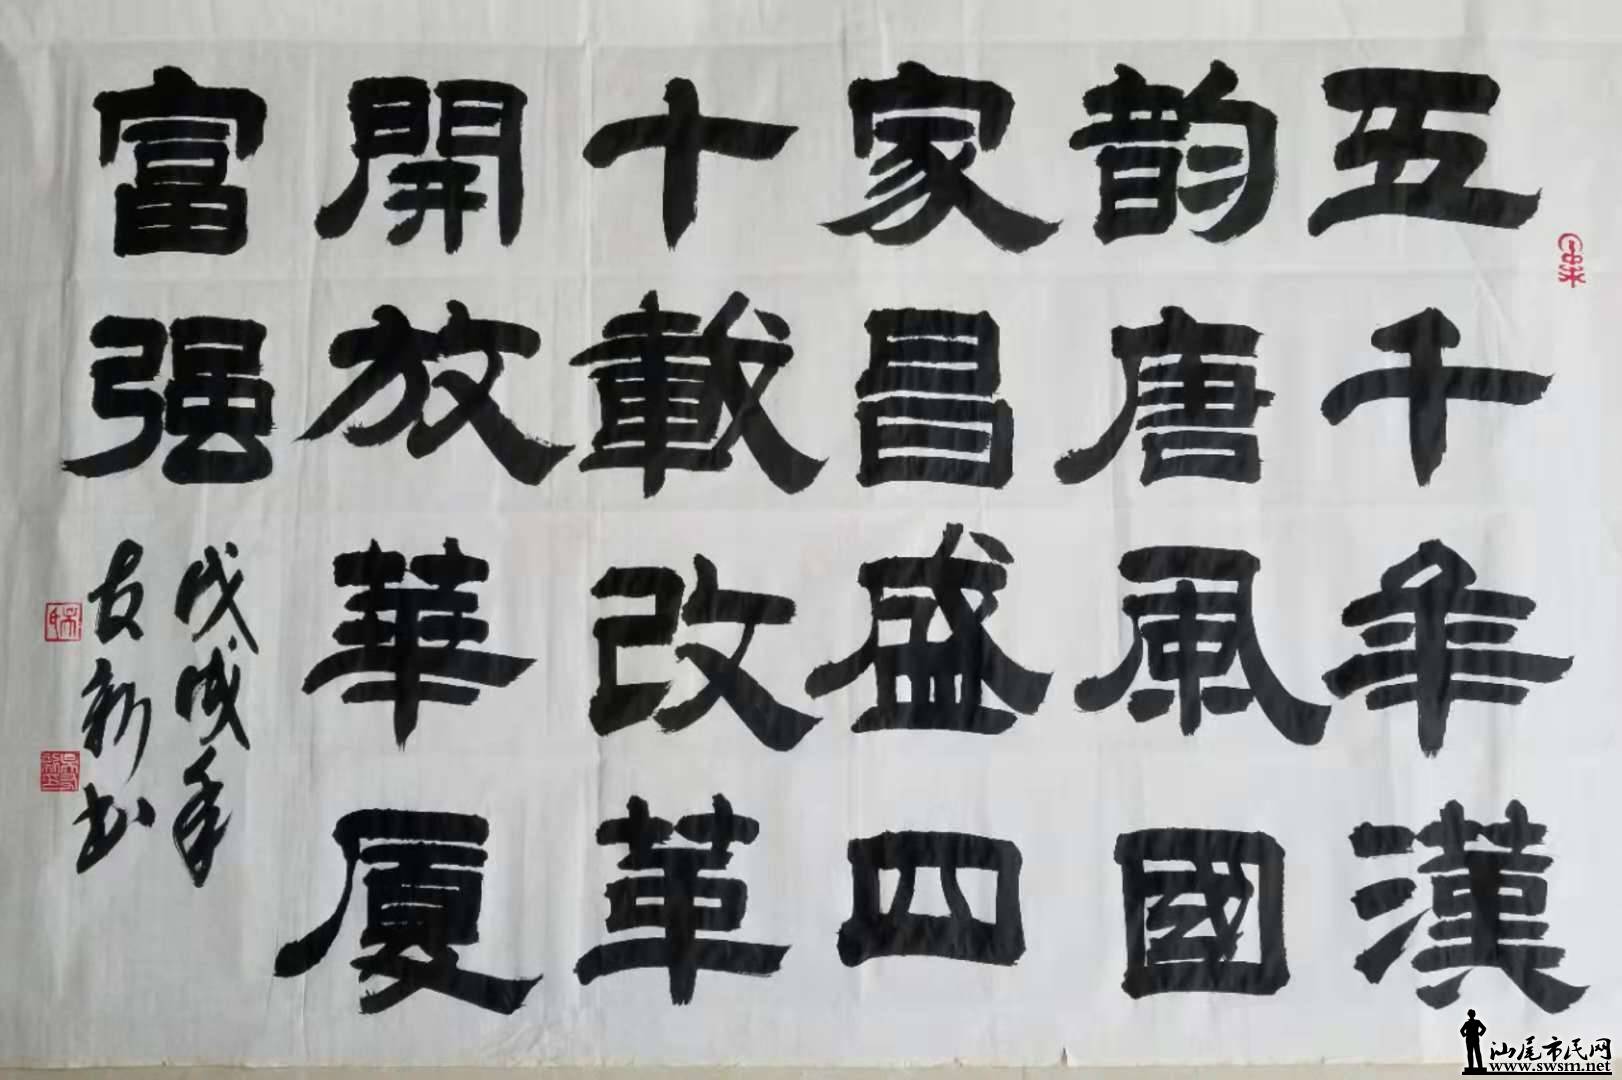 五千年漢
韵唐風國
家昌盛四
十載改革
開放華厦
富强
戊戌年
友新书
汕尾市民网
www.swsm.net